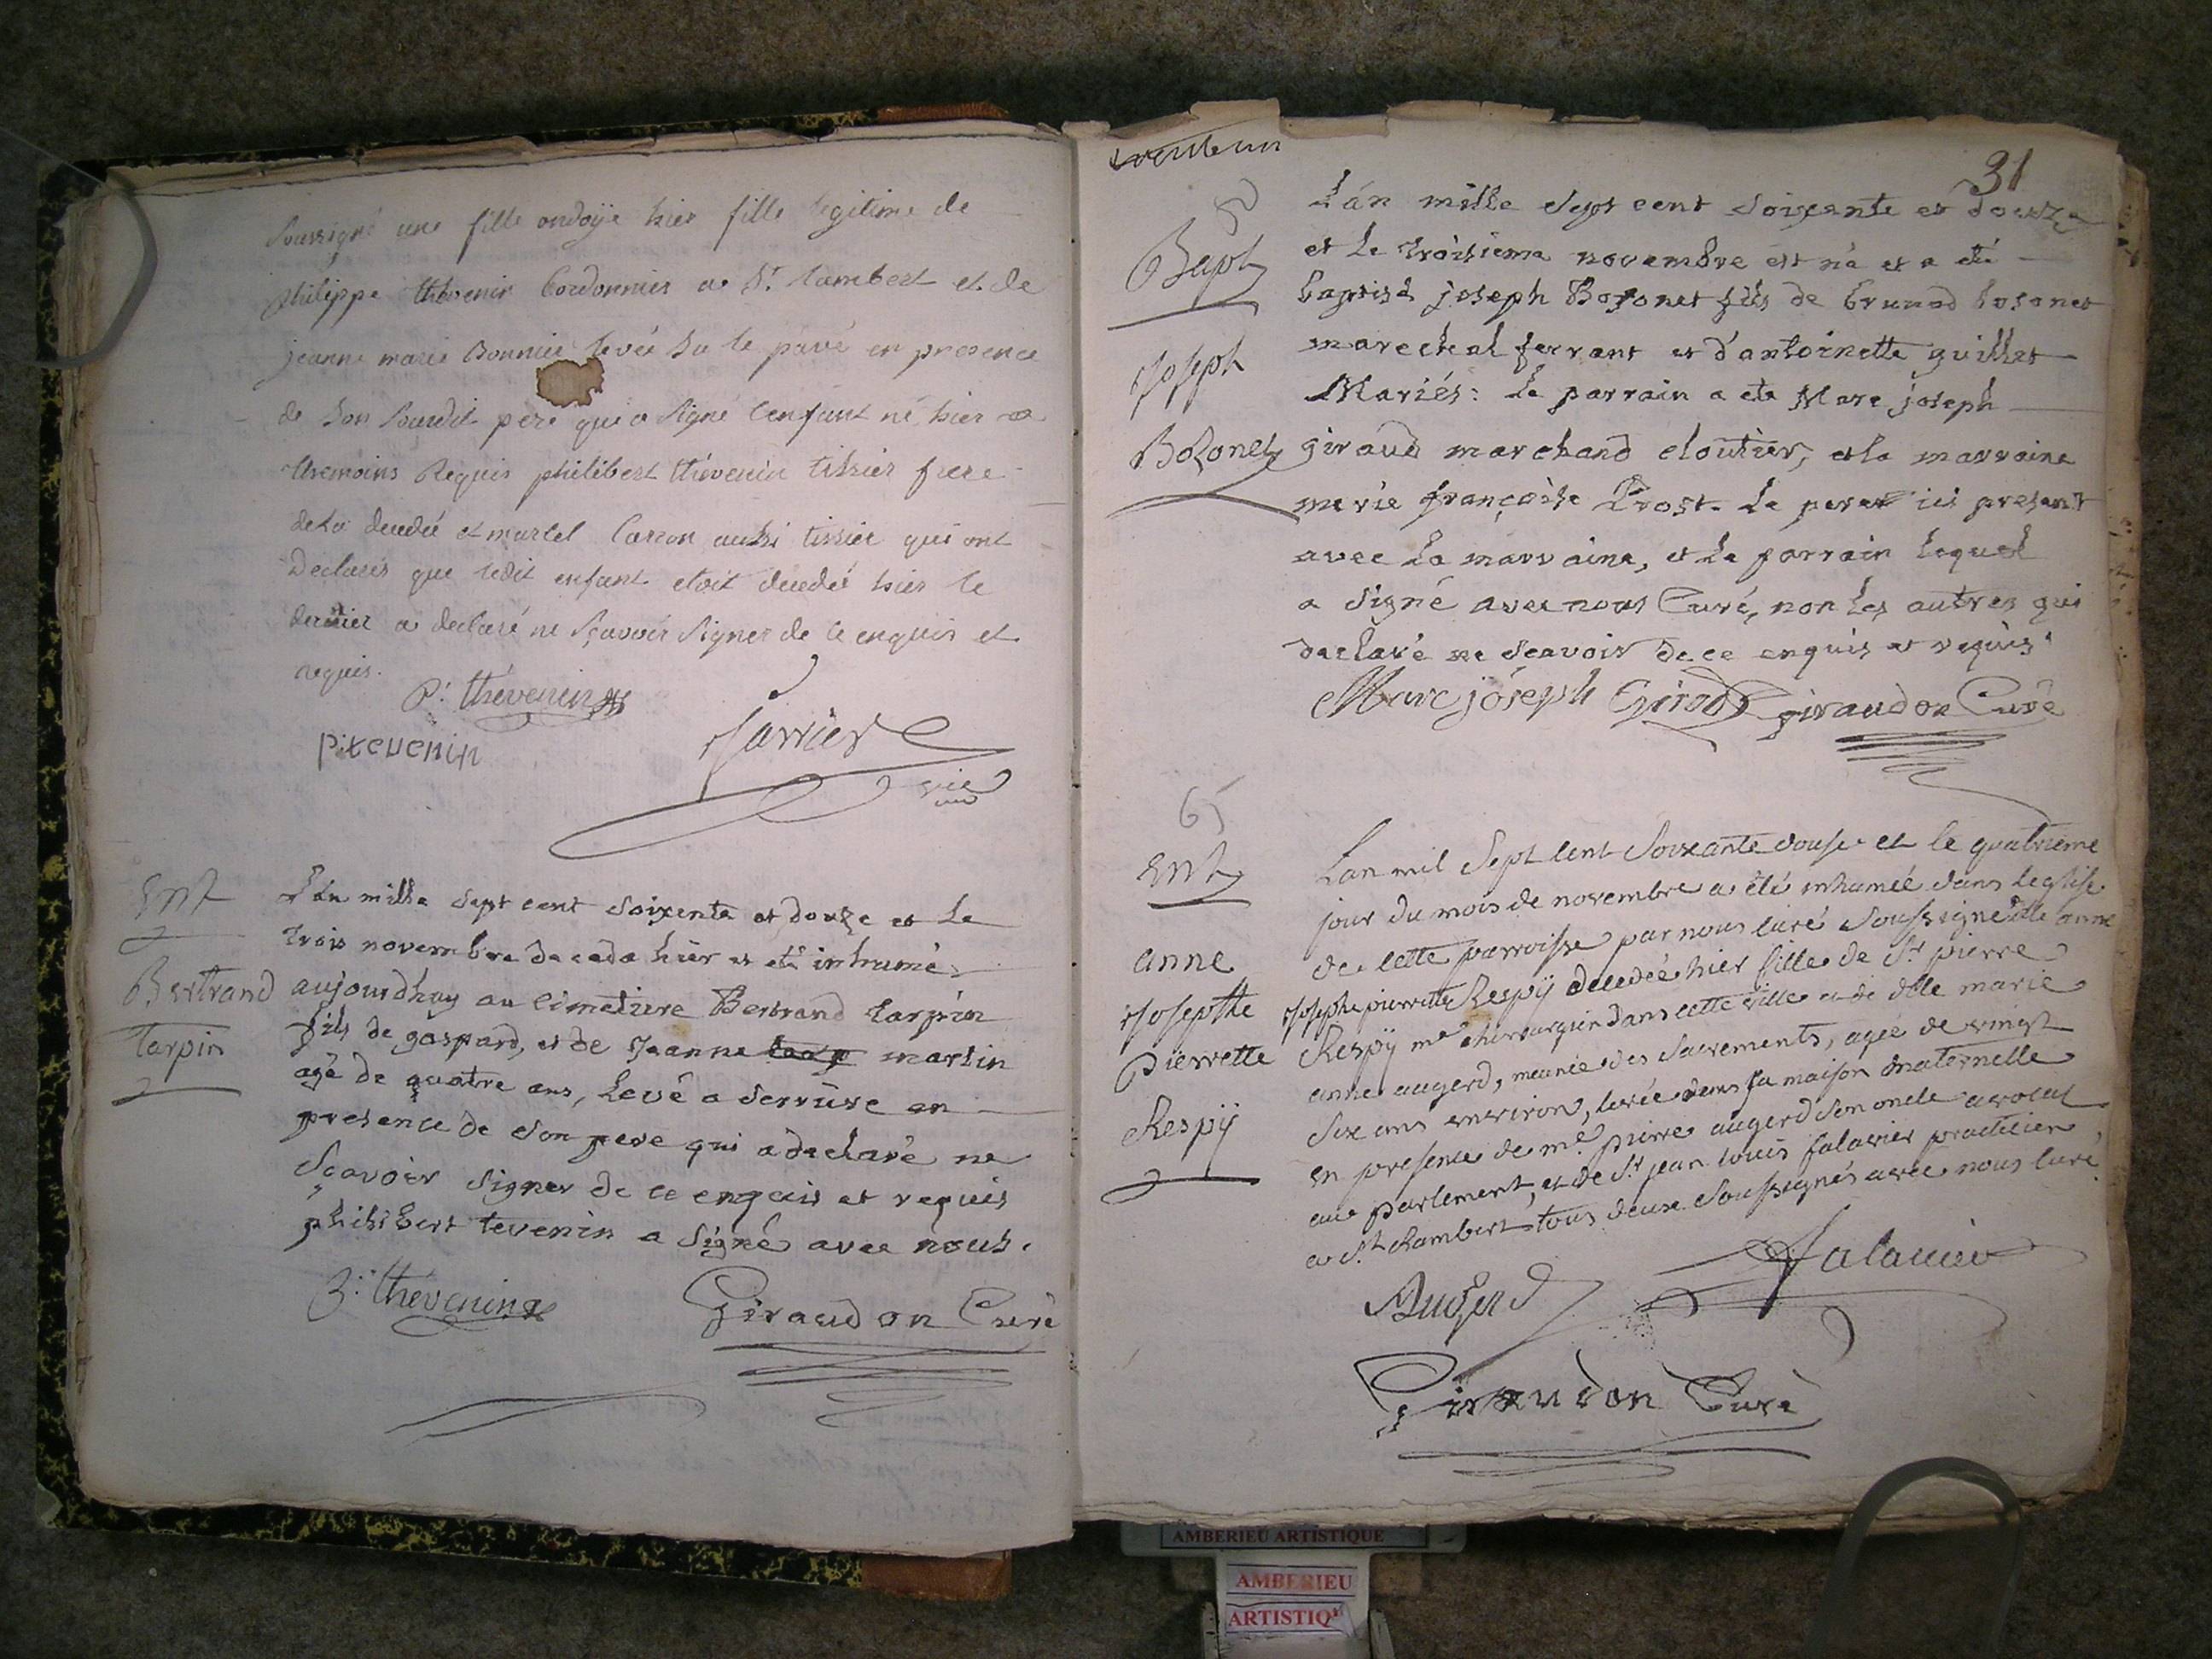 soussigné une fille ondoÿé hier fille legitime de
philippe thévenin Cordonnier a St. Rambert et de
jeanne marie Bonnier levée su le pavé en presence
de son susdit pere qui a signé l'enfant né hier
themoins Requis philibert thévenin tissier frere
de la decedée et martel Carron aussi tissier qui ont
Declarés que ledit enfant etoit decedée hier le
dernier a declaré ne sçavoir signer de ce enquis et
requis.
P. thévenin
pitevenin
Jarrier
vic
Ent
Bertrand
tarpin
L'an mille sept cent soixente et douze et Le
trois novembre decede hier et eté inhumé
aujourdhuy au cimetiere Bertrand tarpin
fils de gaspard, et de Jeanne martin
agé de quatre ans, Levé a serriere en
presence de son pere qui a declaré ne
sçavoir signer de ce enquis et requis
philibert tevenin a signé avec nous.
thévenin
Giraudon Curé
31
Bapt
Joseph
Bozonet
L'án mille sept cent soixante et douze
et Le troisieme novembre est né et a eté
baptisé joseph Bozonet fils de brunod bosonet
marechal ferrant et d'antoinette guillet
Mariés: Le parrain a ete Marc joseph
giraud marchand cloutier, et la marraine
marie françoise Prost. Le pere ici present
avec La marraine, et Le parrain lequel
a signé avec nous Curé, non Les autres qui
declaré ne sçavoir de ce enquis et requis
Marc jóseph Girod giraudon Curé
65
Ent
anne
Josepthe
Pierrette
Respÿ
Lan mil sept cent soixante douse et le quatrieme
jour du mois de novembre a été inhumée dans leglise
de cette parroisse par nous curé soussigné dlle anne
Josephe pierrette Respÿ decedée hier fille de Sr pierre
Respÿ me chirurgien dans cette ville et de dlle marie
anne augerd, meunie des sacrements, agée de vingt
six ans environ, levée dans sa maison maternelle
en presence de me. pierre augerd son oncle avocat
au parlement, et de Sr jean louis falavier practicien
a St. Rambert tous deux soussignés avec nous curé
Augerd
falavier
Giraudon Curé
AMBERIEU ARTISTIQUE
AMBERIEU
ARTISTIQ